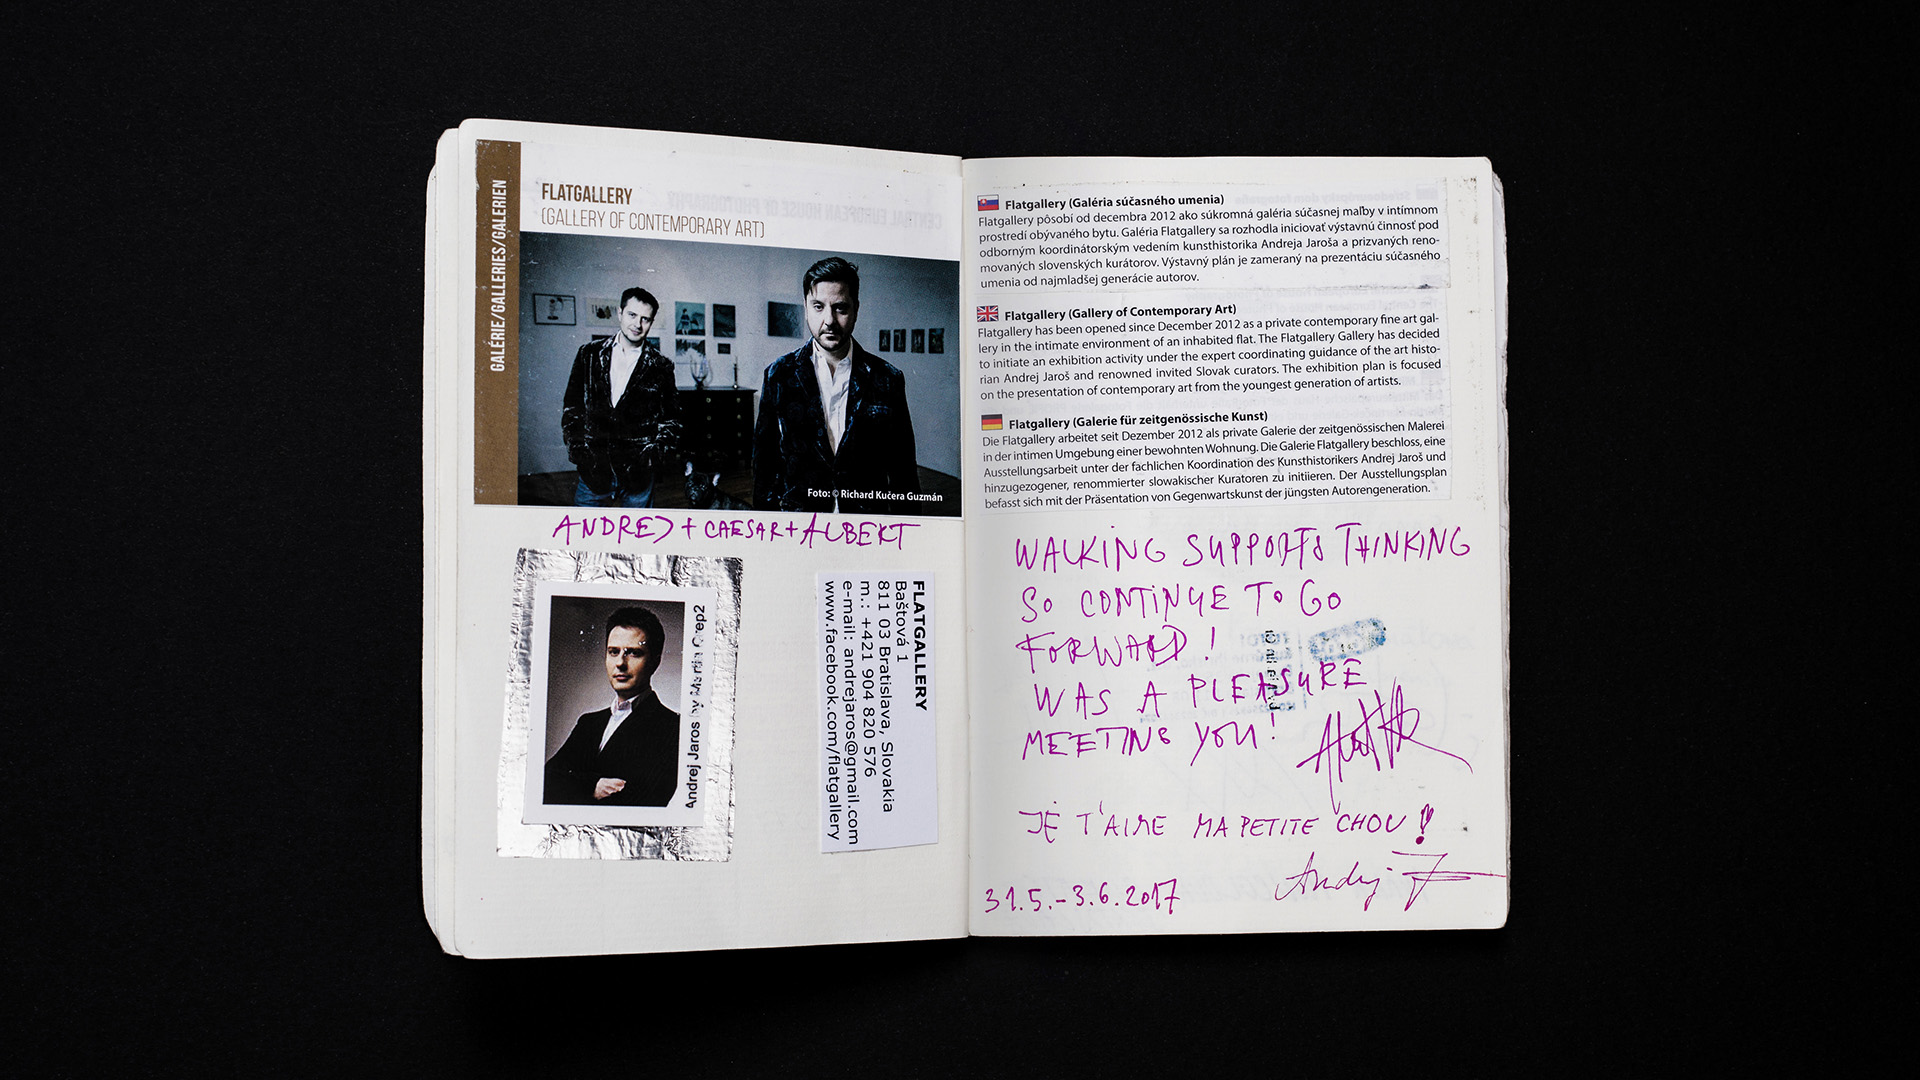 GALÉRIE/GALLERIES/GALERIEN
FLATGALLERY
(GALLERY OF CONTEMPORARY ART)
Foto: © Richard Kučera Guzmán
ANDREJ + CAESAR + ALBERT
Andrej Jaros by Martin Crep2
FLATGALLERY
Baštová 1
811 03 Bratislava, Slovakia
m.: +421 904 820 576
e-mail: andrejjaros@gmail.com
www.facebook.com/flatgallery
Flatgallery (Galéria súčasného umenia)
Flatgallery pôsobí od decembra 2012 ako súkromná galéria súčasnej maľby v intímnom
prostredí obývaného bytu. Galéria Flatgallery sa rozhodla iniciovať výstavnú činnosť pod
odborným koordinátorským vedením kunsthistorika Andreja Jaroša a prizvaných reno-
movaných slovenských kurátorov. Výstavný plán je zameraný na prezentáciu súčasného
umenia od najmladšej generácie autorov.
Flatgallery (Gallery of Contemporary Art)
Flatgallery has been opened since December 2012 as a private contemporary fine art gal-
lery in the intimate environment of an inhabited flat. The Flatgallery Gallery has decided
to initiate an exhibition activity under the expert coordinating guidance of the art histo-
rian Andrej Jaroš and renowned invited Slovak curators. The exhibition plan is focused
on the presentation of contemporary art from the youngest generation of artists.
Flatgallery (Galerie für zeitgenössische Kunst)
Die Flatgallery arbeitet seit Dezember 2012 als private Galerie der zeitgenössischen Malerei
in der intimen Umgebung einer bewohnten Wohnung. Die Galerie Flatgallery beschloss, eine
Ausstellungsarbeit unter der fachlichen Koordination des Kunsthistorikers Andrej Jaroš und
hinzugezogener, renommierter slowakischer Kuratoren zu initiieren. Der Ausstellungsplan
befasst sich mit der Präsentation von Gegenwartskunst der jüngsten Autorengeneration.
WALKING SUPPORTS THINKING
SO CONTINUE TO GO
FORWARD!
WAS A PLEASURE
MEETING YOU!
JE T'AIME MA PETITE CHOU!
Andrej J
31.5.-3.6.2017